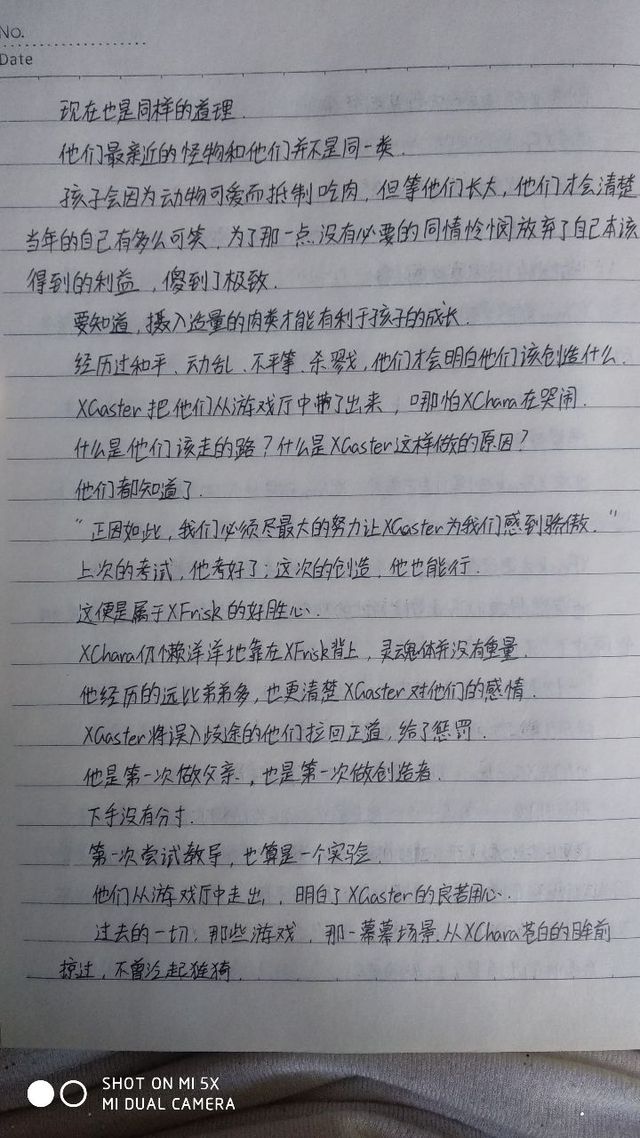 No.
Date
现在也是同样的道理.
他们最亲近的怪物和他们并不是同一类.
孩子会因为动物可爱而抵制吃肉, 但等他们长大, 他们才会清楚
当年的自己有多么可笑, 为了那一点没有必要的同情怜悯放弃了自己本该
得到的利益, 傻到了极致.
要知道, 摄入适量的肉类才能有利于孩子的成长.
经历过和平、动乱、不平等、杀戮, 他们才会明白他们该创造什么.
XGaster把他们从游戏厅中带了出来, 哪怕XChara在哭闹.
什么是他们该走的路? 什么是XGaster这样做的原因?
他们都知道了.
“正因如此, 我们必须尽最大的努力让XGaster为我们感到骄傲.”
上次的考试, 他考好了; 这次的创造, 他也能行.
这便是属于XFrisk的好胜心.
XChara仍懒洋洋地靠在XFrisk背上, 灵魂体并没有重量.
他经历的远比弟弟多, 也更清楚XGaster对他们的感情.
XGaster将误入歧途的他们拉回正道, 给了惩罚.
他是第一次做父亲, 也是第一次做创造者.
下手没有分寸.
第一次尝试教导, 也算是一个实验.
他们从游戏厅中走出, 明白了XGaster的良苦用心.
过去的一切, 那些游戏, 那一幕幕场景从XChara苍白的眸前
掠过, 不曾泛起涟漪.
SHOT ON MI 5X
MI DUAL CAMERA